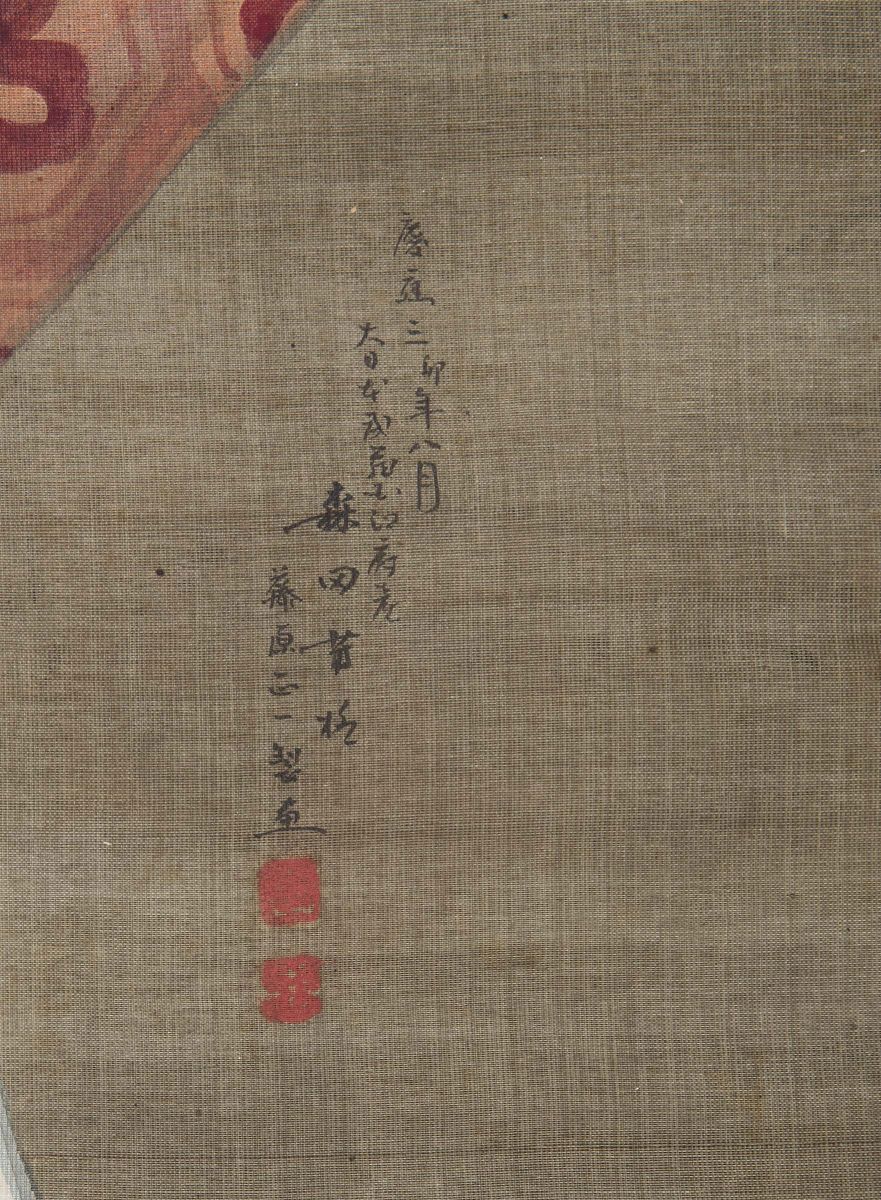 慶應三卯年八月
大日本武蔵国江府産
森田
藤原正一製画